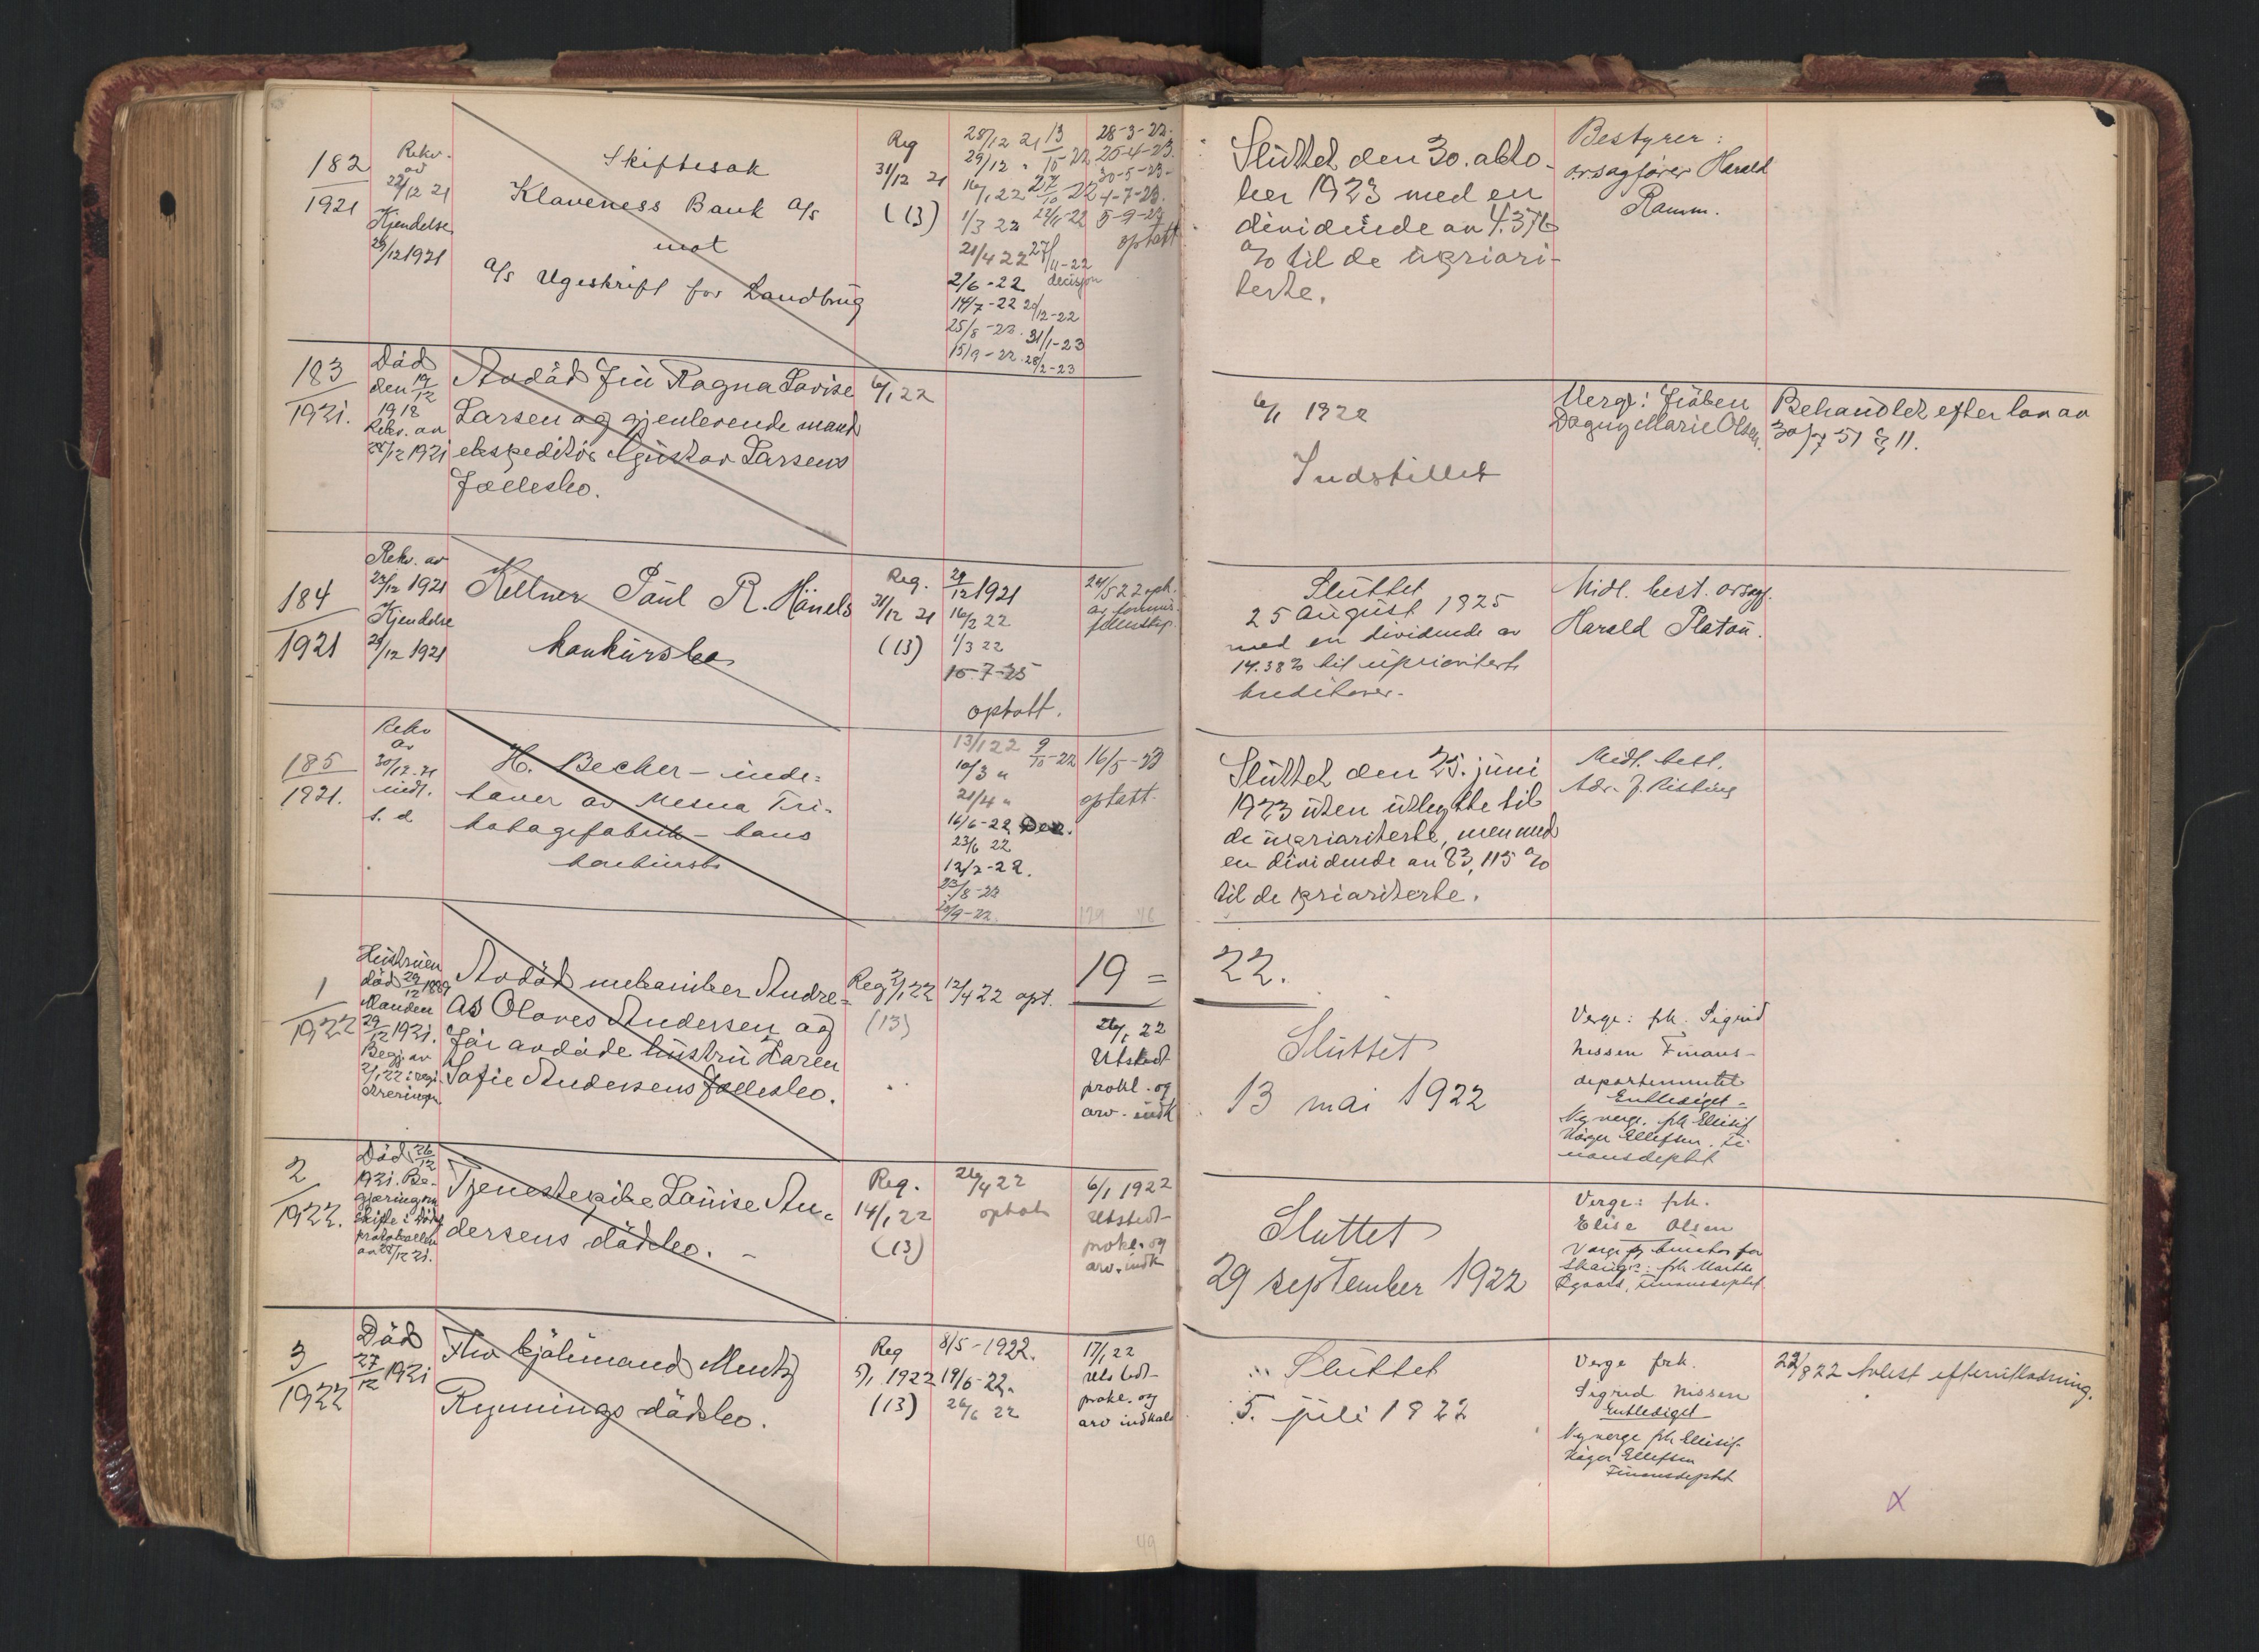 182
1921
Rekv.
av
22/12 21
Kjendelse
29/12 1921
Skiftesak
Klaveness Bank A/S
mot
A/S Ugeskrift for Landbrug
Reg
31/12 21
(13)
29/12 "
1/3 22
21/4 22
2/6-22
14/7-22
25/8-22.
15/9-22
27/11-22
decisjon
20/12-22
31/1-23
28/2-23
28-3-22.
25-4-23.
30-5-23-
4-7-23.
5-9-23
optatt
Sluttet den 30. okto-
ber 1923 med en
dividende av
% til de upriori-
terte.
Bestyrer:
orsagfører Harald
Ramm.
183
1921.
Död
den 19/12
1918
Rekv. av
1921
Avdöd Fru Ragna Lovise
Larsen og gjenlevende mand
ekspeditör Gustav Larsens
Fællesbo.
6/1 22
6/1 1922
Indstillet
Verge: Fröken
Dagny Marie Olsen.
Behandlet efter lov av
30/7 51 § 11.
184
1921
Rekv. av
23/12 1921
Kjendelse
29/12 1921
Kellner Paul R. Hänels
konkursbo
Reg.
31/12 21
(13)
29/12 1921
16/2 22
1/3 22
15-7-25
optatt.
24/5 22 opt.
Sluttet
25 august 1925
med en dividende av
14.38% til uprioriterte
kreditorer.
Midl. best. orsagf.
Harald Platou.
185
1921.
Rekv
av
30/12-21
indl.
s. d
H. Becher - inde=
haver av Mesna Tri-
kotagefabrik - hans
konkursbo
13/1 22
10/3 "
21/4 "
16/6-22 Dec.
23/6 22
12/7-22.
23/8-22
20/9-22
9/10-22
16/5-23
optatt.
Sluttet den 25. juni
1923 uten utlegg til
de uprioriterte, men med
en dividende av 83,115 %
til de prioriterte.
Midl. best.
Adv. J. Risting
19 = 22.
1
1922
Hustruen
död 29/12 1889
Manden
29/12 1921.
Begj. av
2/1 22 i regi-
streringen
Avdöd mekaniker Andre=
as Olaves Andersen og
för avdöde hustru Karen
Sofie Andersens fællesbo.
Reg 2/1 22
(13)
12/4 22 opt.
26/1 22
Utstedt
prokl. og
arv. indk
Sluttet
13 mai 1922
Verge: frk. Sigrid
Nissen Finans-
departementet
Entlediget -
Ny verge. frk Ellisif
Häger Ellefsen. Fi
nansdeptet
2
1922.
Död 26/12
1921. Be-
gjæring om
skifte i döds
protokollen
av 28/12 21.
Tjenestepike Lauise An-
dersens dödsbo. -
Reg.
14/1 22
(13)
26/4 22
optatt
6/1 1922
Utstedt-
prokl. og
arv. indk
Sluttet
29 september 1922
Verge: frk.
Elise Olsen
Finansdeptet
3
1922
Död
27/12 1921
Fhv kjölemand Mentz
Rynnings dödsbo.
Reg
5/1 1922
(13)
8/5-1922.
19/6-22.
26/6 22
17/1 22
Utstedt-
prokl. og
arv indkald
Sluttet
5. juli 1922
Verge frk.
Sigrid Nissen
Entlediget
Ny verge frk Ellisif
Häger Ellefsen
Finansdeptet
22/8 22 Avlest efterutlodning.
X
49